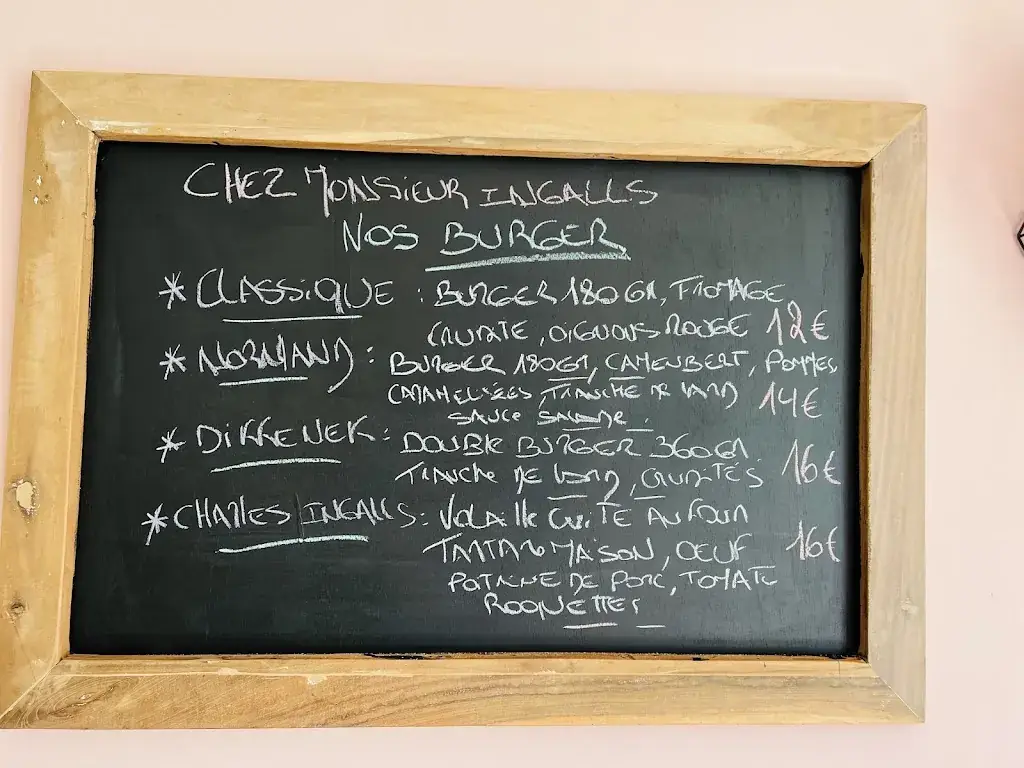 CHEZ MONSIEUR INGALLS
NOS BURGER
* CLASSIQUE : BURGER 180 GR, FROMAGE
CRUDITE, OIGNONS ROUGE 12€
* NORMAND : BURGER 180 GR, CAMEMBERT, POMMES
CARAMELISÉES, TRANCHE DE LARD 14€
SAUCE
* DIKKENEK : DOUBLE BURGER 360 GR
TRANCHE DE LARD, CRUDITÉS 16€
* CHARLES INGALLS : VOLAILLE CUITE AU FOUR
TARTARE MAISON, OEUF 16€
POITRINE DE PORC, TOMATE
ROQUETTES